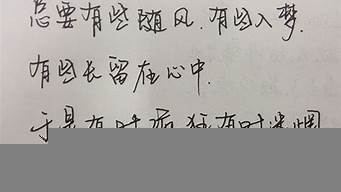 总要有些随风，有些入梦，
有些长留在心中.
于是有时疯狂有时迷惘